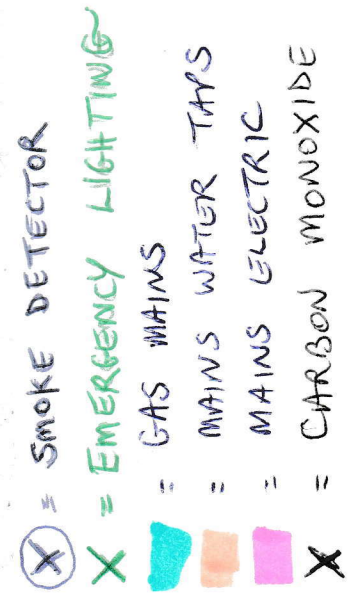 X = SMOKE DETECTOR
X = EMERGENCY LIGHTING
= GAS MAINS
= MAINS WATER TAPS
= MAINS ELECTRIC
X = CARBON MONOXIDE